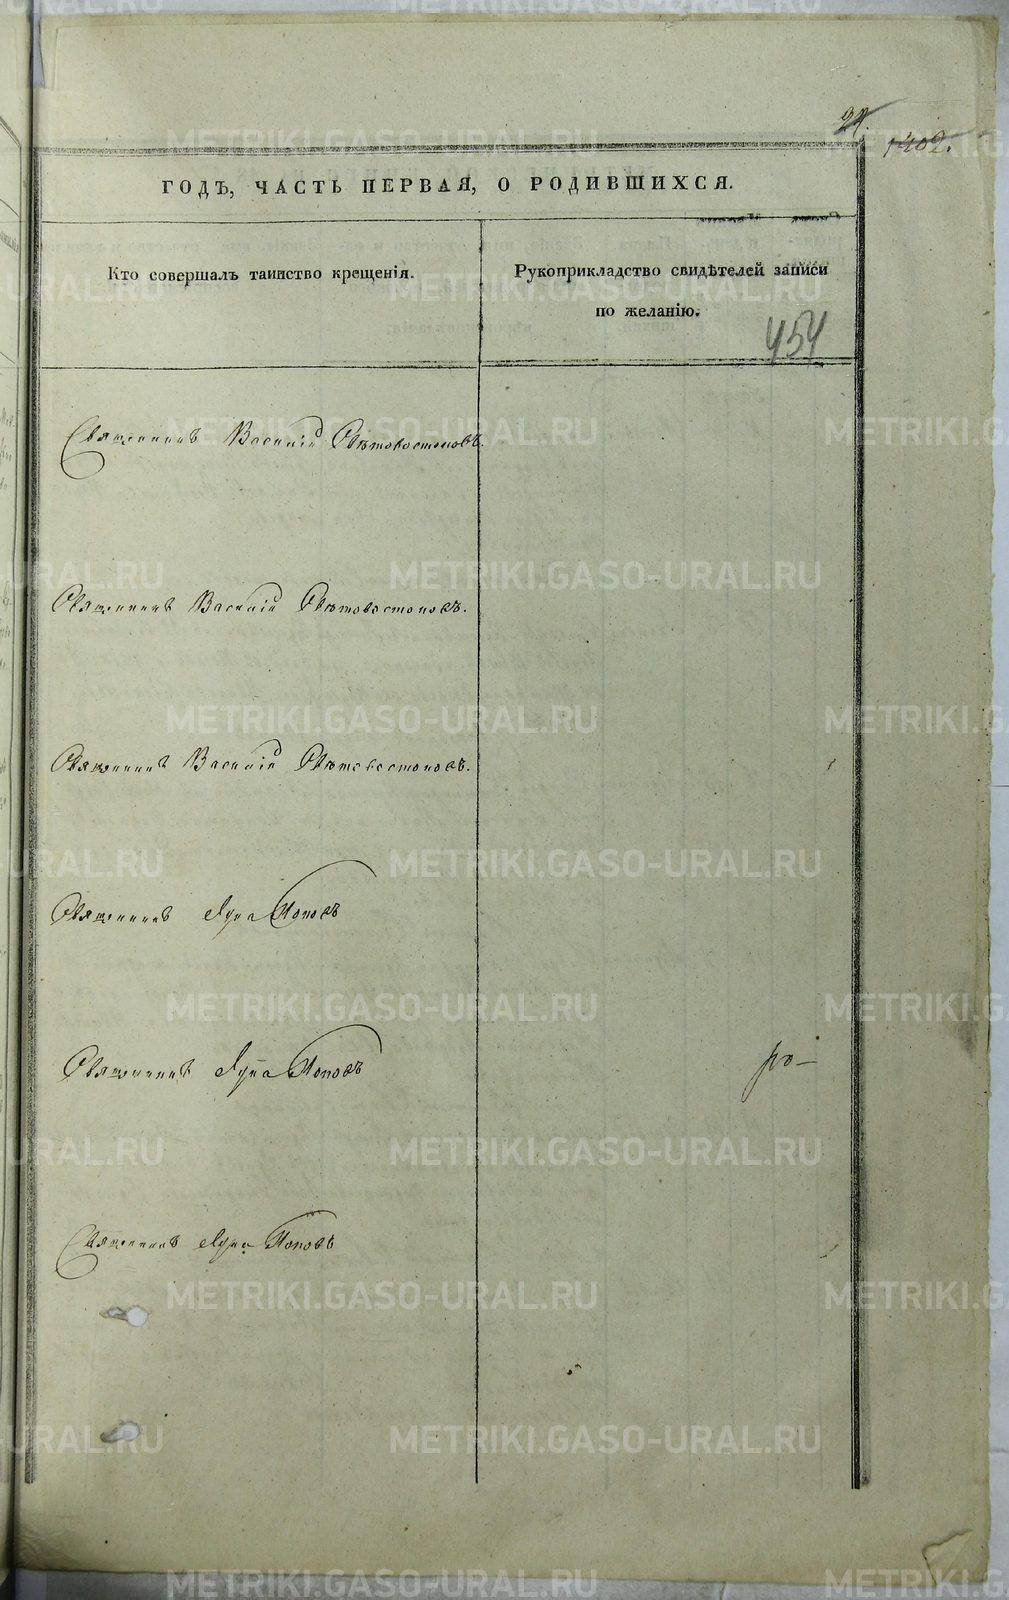 24.
1402.
ГОДЪ, ЧАСТЬ ПЕРВАЯ, О РОДИВШИХСЯ.
Кто совершалъ таинство крещенія.
Рукоприкладство свидѣтелей записи
по желанію.
454
Священникъ Василій Свѣтовостоковъ.
Священникъ Василій Свѣтовостоковъ.
Священникъ Василій Свѣтовостоковъ.
Священникъ Лука Поповъ
Священникъ Лука Поповъ
Священникъ Лука Поповъ
METRIKI.GASO-URAL.RU